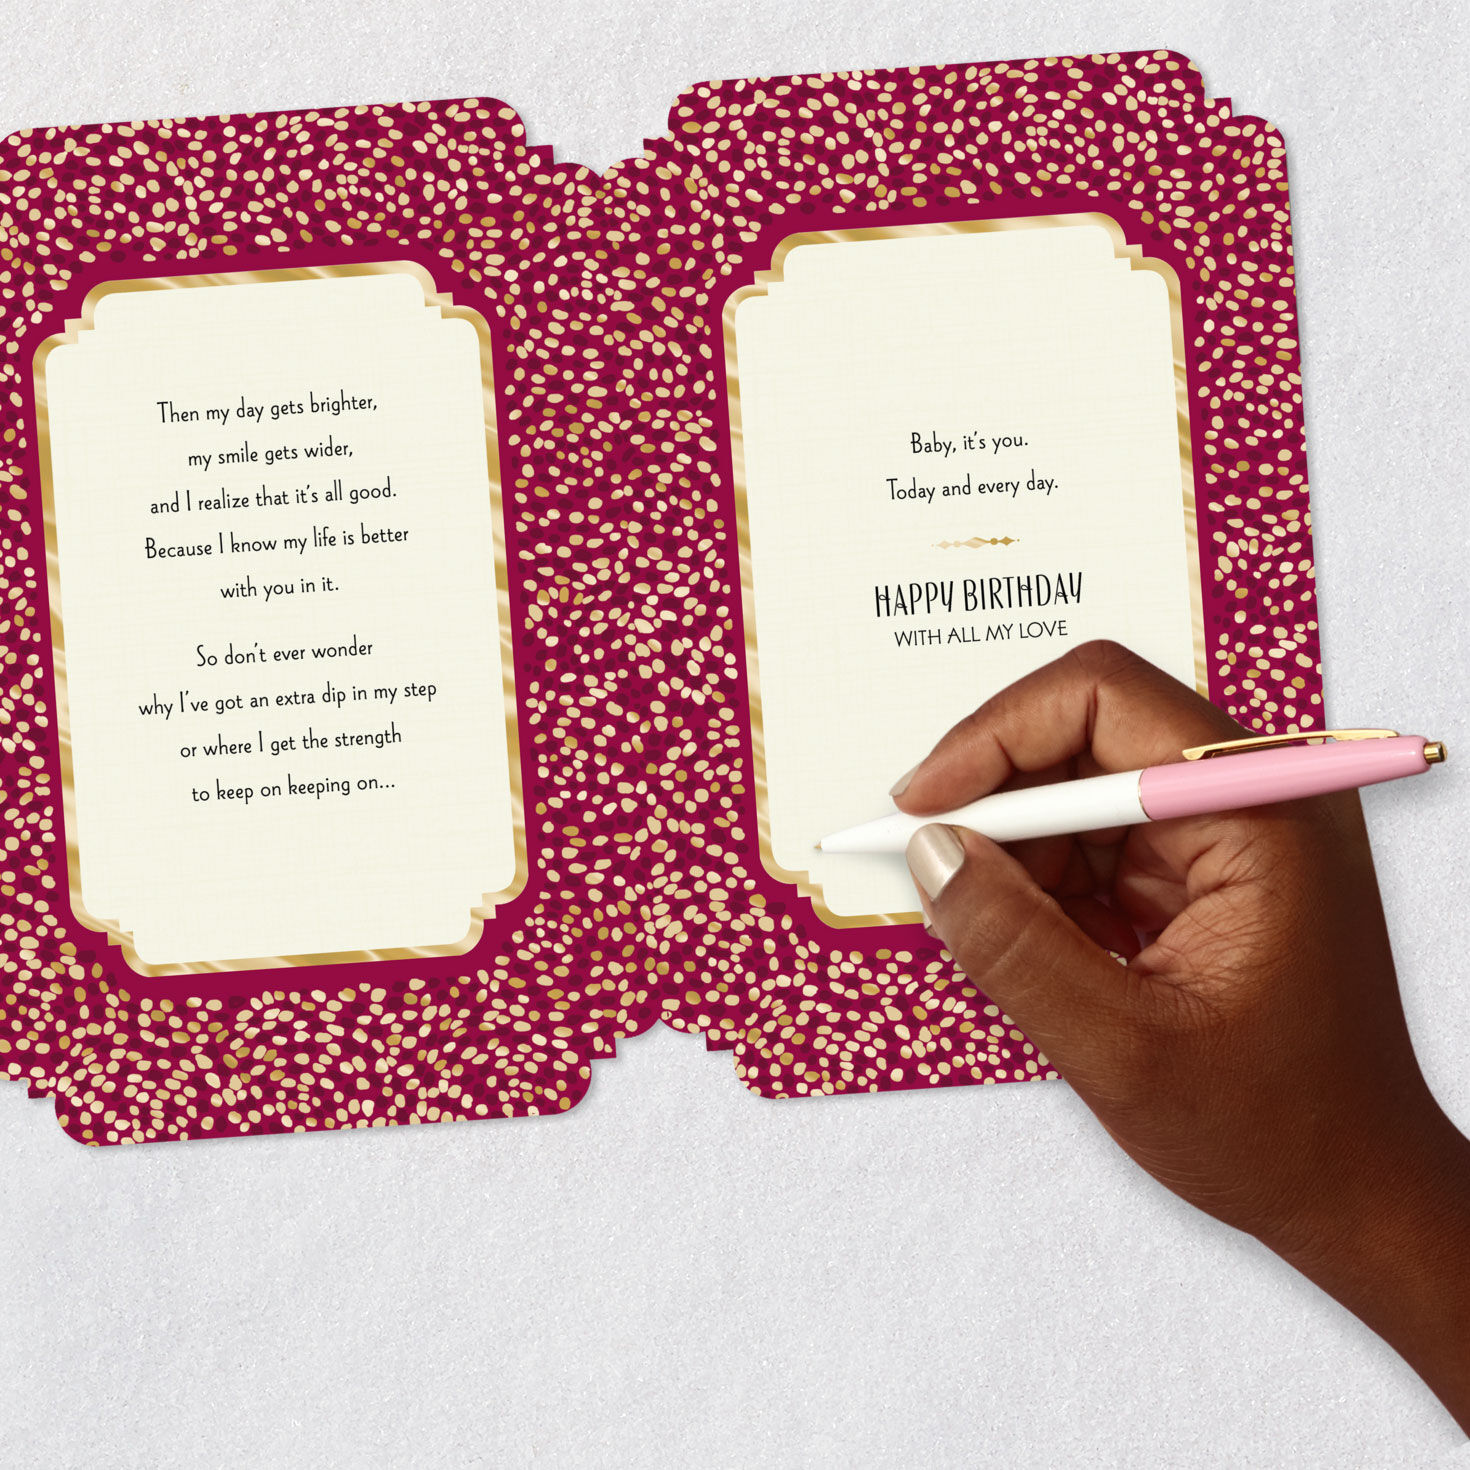 Then my day gets brighter,
my smile gets wider,
and I realize that it's all good.
Because I know my life is better
with you in it.
So don't ever wonder
why I've got an extra dip in my step
or where I get the strength
to keep on keeping on...
Baby, it's you.
Today and every day.
HAPPY BIRTHDAY
WITH ALL MY LOVE